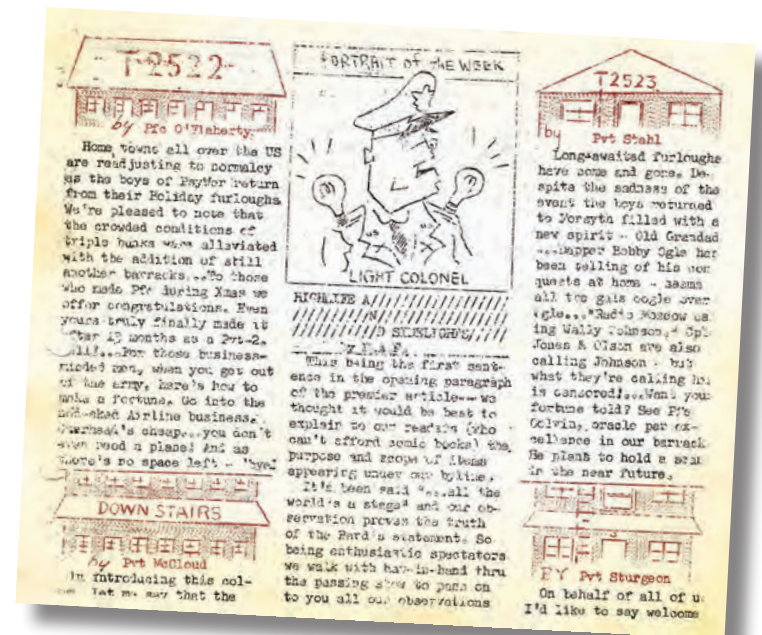 T-2522
by Pfc O'Flaherty
Home towns all over the US
are readjusting to normalcy
as the boys of PsyWar return
from their Holiday furloughs.
We're pleased to note that
the crowded conditions of
triple bunks were alleviated
with the addition of still
another barracks...To those
who made Pfc during Xmas we
offer congratulations. Even
yours truly finally made it
after 13 months as a Pvt-2.
For those business-
minded men, when you get out
of the army, here's how to
make a fortune. Go into the
Airline business.
Overhead's cheap...you don't
even need a plane! And as
there's no space left - 'bye!
DOWN STAIRS
by Pvt McCloud
In introducing this col-
let me say that the
PORTRAIT of the WEEK
LIGHT COLONEL
HIGHLIFE A/////////////
///////////N/////////
///////////D SIDELIGHTS////
by
This being the first sent-
ence in the opening paragraph
of the premier article--we
thought it would be best to
explain to our readers (who
can't afford comic books) the
purpose and scope of items
appearing under our byline.
It's been said "...all the
world's a stage" and our ob-
servation proves the truth
of the Bard's statement. So
being enthusiastic spectators
we walk with hat-in-hand thru
the passing show to pass on
to you all our observations
T2523
by Pvt Stahl
Long-awaited furloughs
have come and gone. De-
spite the sadness of the
event the boys returned
to Forsyth filled with a
new spirit - Old Grandad
...Dapper Bobby Ogle has
been telling of his con
quests at home - seems
all the gals oogle over
Ogle..."Radio Moscow ca
ing Wally Johnson." Cpl
Jones & Olson are also
calling Johnson - but
what they're calling hi
is censored!...Want your
fortune told? See Pfc
Colvin, oracle par ex-
cellence in our barrack
He plans to hold a sean
in the near future.
BY Pvt Sturgeon
On behalf of all of u
I'd like to say welcome